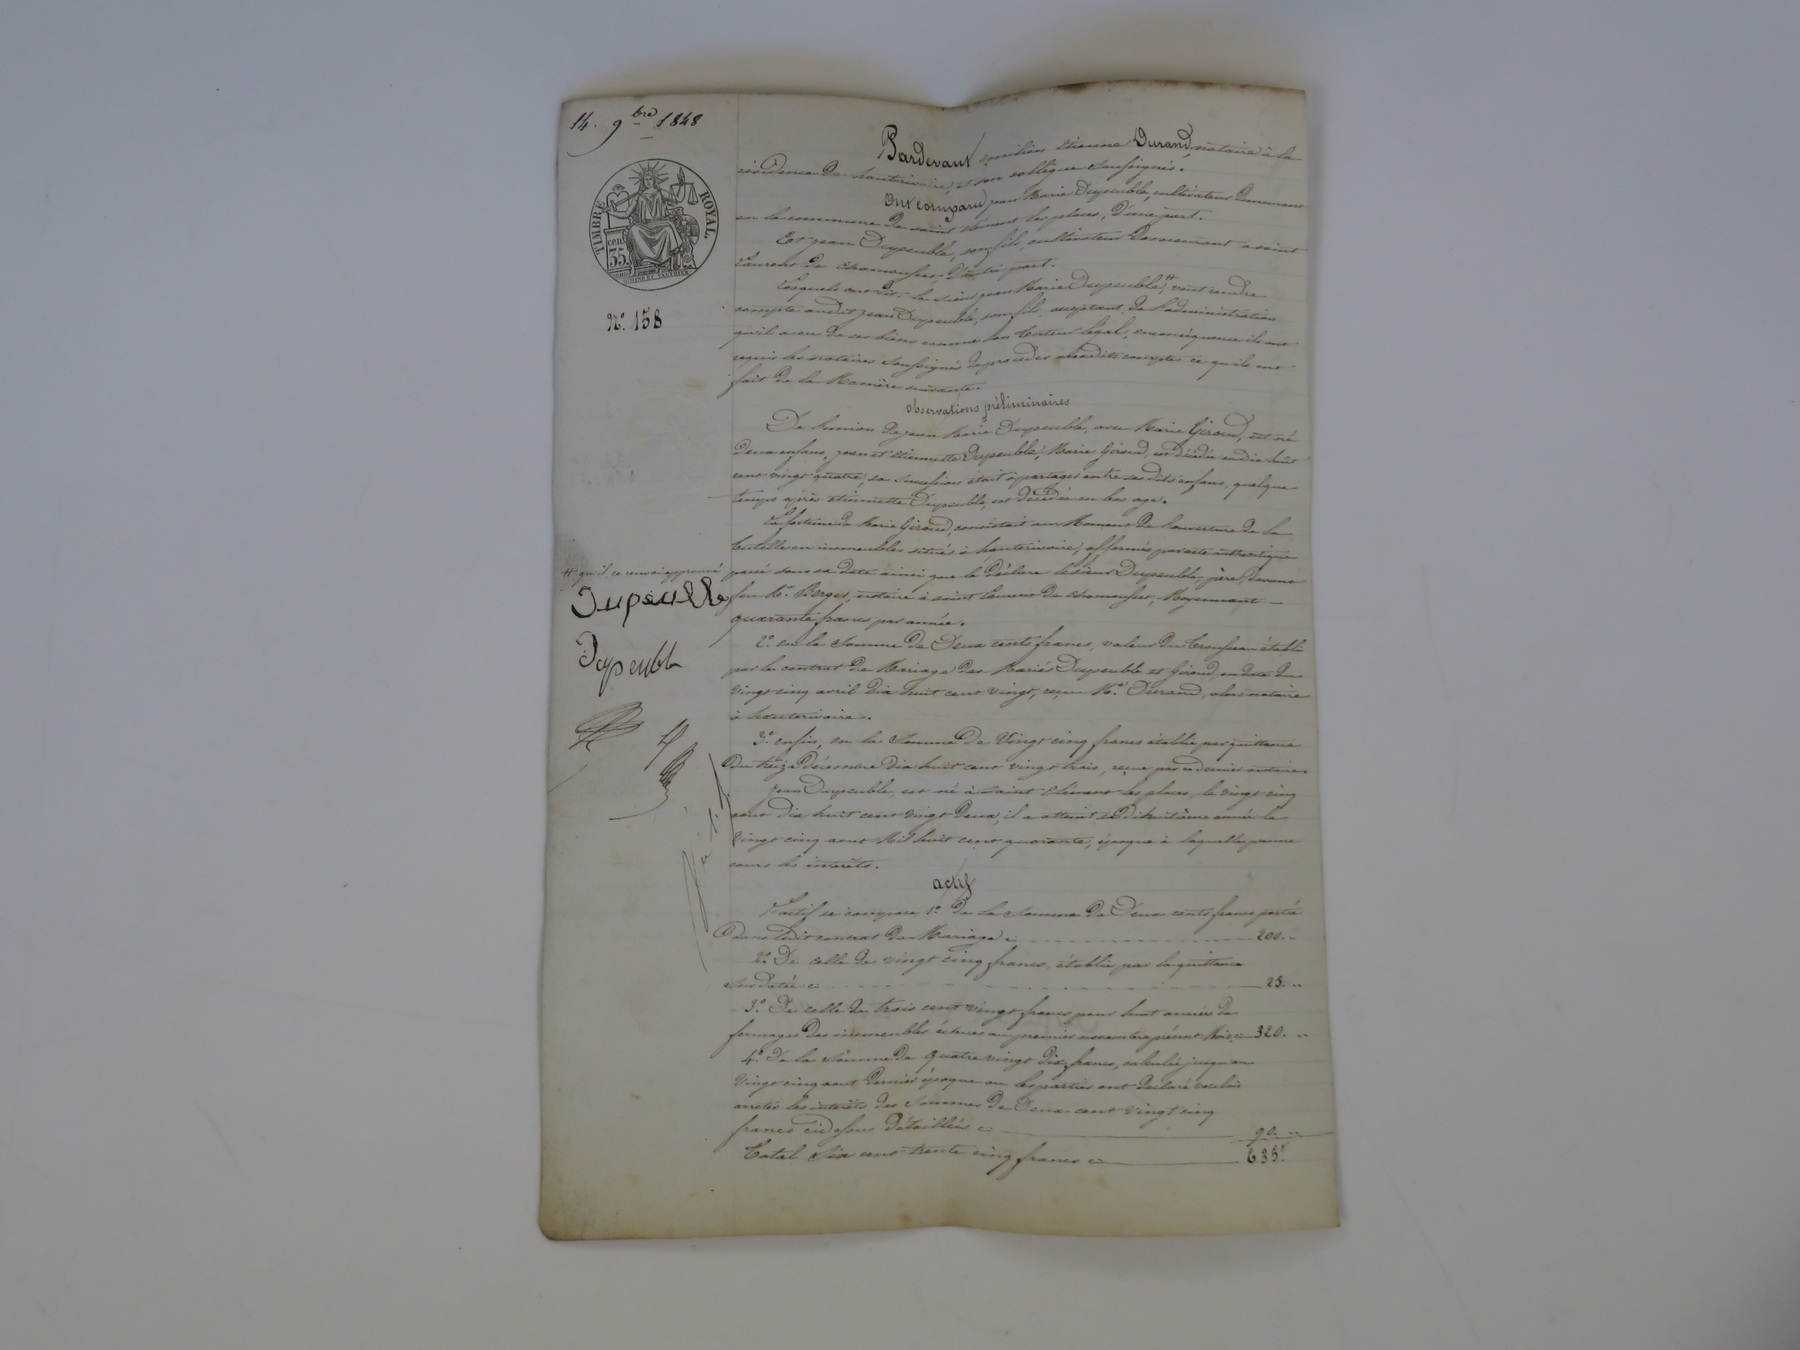 14. 9bre 1848
TIMBRE ROYAL.
cen. 35.
No. 158
Pardevant Etienne Durand, notaire à la
résidence de hauterivoire, et son collègue soussignés.
Ont comparu jean Marie Dupeuble, cultivateur demeurant
en la commune de saint clément les places, d'une part.
Et jean Dupeuble, son fils, cultivateur demeurant à saint
Laurent de chamousset, d'autre part.
Lesquels ont dit: le sieur jean Marie Dupeuble, # veut rendre
compte audit jean Dupeuble, son fils, acceptant, de l'administration
qu'il a eu de ses biens comme son tuteur légal, en conséquence ils ont
requis les notaires soussignés de procéder auxdits comptes ce qu'ils ont
fait de la Manière suivante.
observations préliminaires
De l'union de jean Marie Dupeuble, avec Marie Giroud, est né
deux enfans, jean et étiennette Dupeuble, Marie Giroud, est décédée en dix huit
cent vingt quatre, sa succession était à partager entre ses dits enfans, quelque
temps après étiennette Dupeuble, est décédée en bas age.
La fortune de Marie Giroud, consistait au Moment de l'ouverture de la
tutelle en immeubles situés à hauterivoire, affermés par acte authentique
passé sous sa date ainsi que le déclare le sieur Dupeuble, père, devant
feu Me. Berger, notaire à saint Laurent de chamousset, Moyennant
quarante francs par année.
2o. en la somme de Deux cents francs, valeur du trousseau établi
par le contrat de Mariage des Mariés Dupeuble et Giroud, en date du
vingt cinq avril dix huit cent vingt, reçu Me. Durand, alors notaire
à hauterivoire.
3o. enfin, en la somme de Vingt cinq francs établie par quittance
du treize décembre dix huit cent vingt trois, reçue par ce dernier notaire.
jean Dupeuble, est né à saint clément les places, le vingt cinq
aout dix huit cent vingt deux, il a atteint sa dixhuitième année le
vingt cinq aout Mil huit cent quarante, époque à laquelle
cours les intérêts.
actif
L'actif se compose 1o. de la somme de Deux cents francs portée
dans ledit contrat de Mariage ci 200.
2o. De celle de vingt cinq francs, établie par la quittance
sus datée ci 25.
3o. De celle de trois cent vingt francs pour huit années de
fermages des immeubles échues au premier novembre présent Mois, ci 320.
4o. De la somme de quatre vingt dix francs, calculée jusqu'au
vingt cinq aout dernier époque ou les parties ont déclaré vouloir
arrêter les intérêts des sommes de Deux cent vingt cinq
francs ci dessus détaillées ci 90.
Total Six cent trente cinq francs ci 635f
# qu'il, ce renvoi approuvé
Dupeuble
Dupeuble